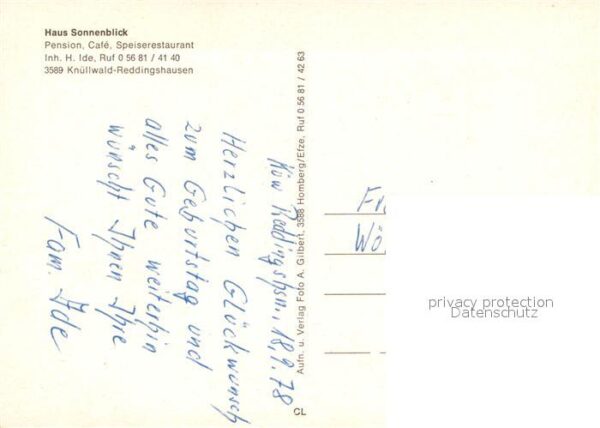 Haus Sonnenblick
Pension, Café, Speiserestaurant
Inh. H. Ide, Ruf 0 56 81 / 41 40
3589 Knüllwald-Reddingshausen
Reddingshsn., 18.9.78
Herzlichen Glückwunsch
zum Geburtstag und
alles Gute weiterhin
wünscht Ihnen Ihre
Fam. Ide
Aufn. u. Verlag Foto A. Gilbert, 3588 Homberg/Efze, Ruf 0 56 81 / 42 63
CL
privacy protection
Datenschutz